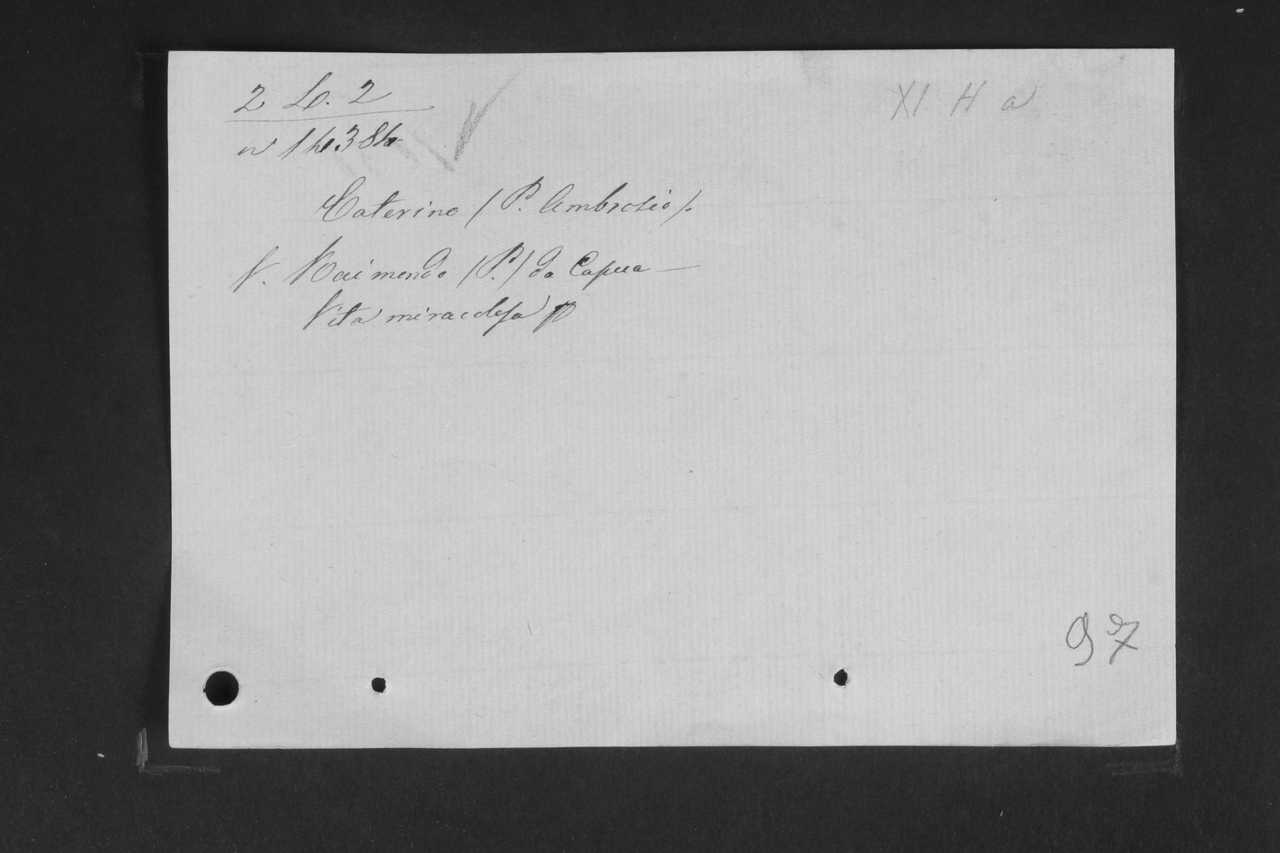 2 L. 2
XI H a
n° 14384
Caterino (P. Ambrosio).
V. Raimondo (P.) da Capua —
Vita miracolosa
97